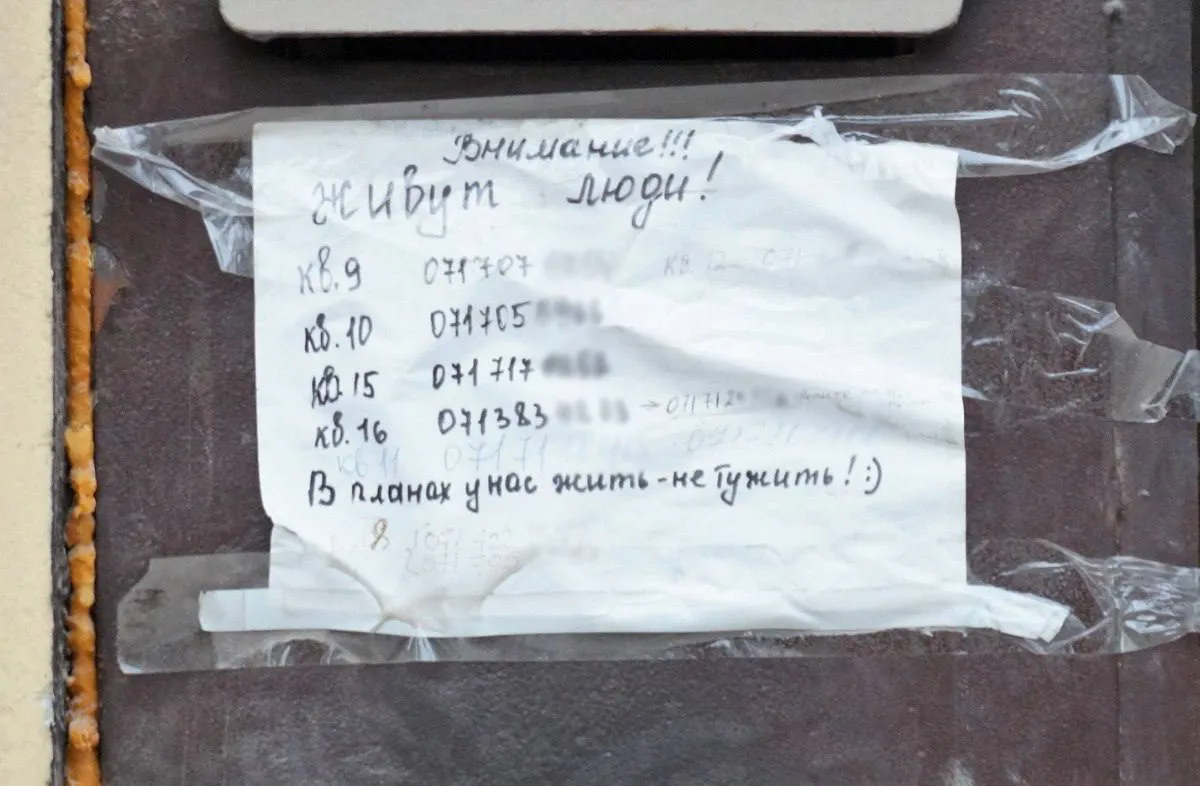 Внимание!!!
живут люди!
кв.9 071707 кв. 12 071
кв.10 071705
кв.15 071717
кв.16 071383 → 071712
кв 11 07171
В планах у нас жить-не тужить! :)
8